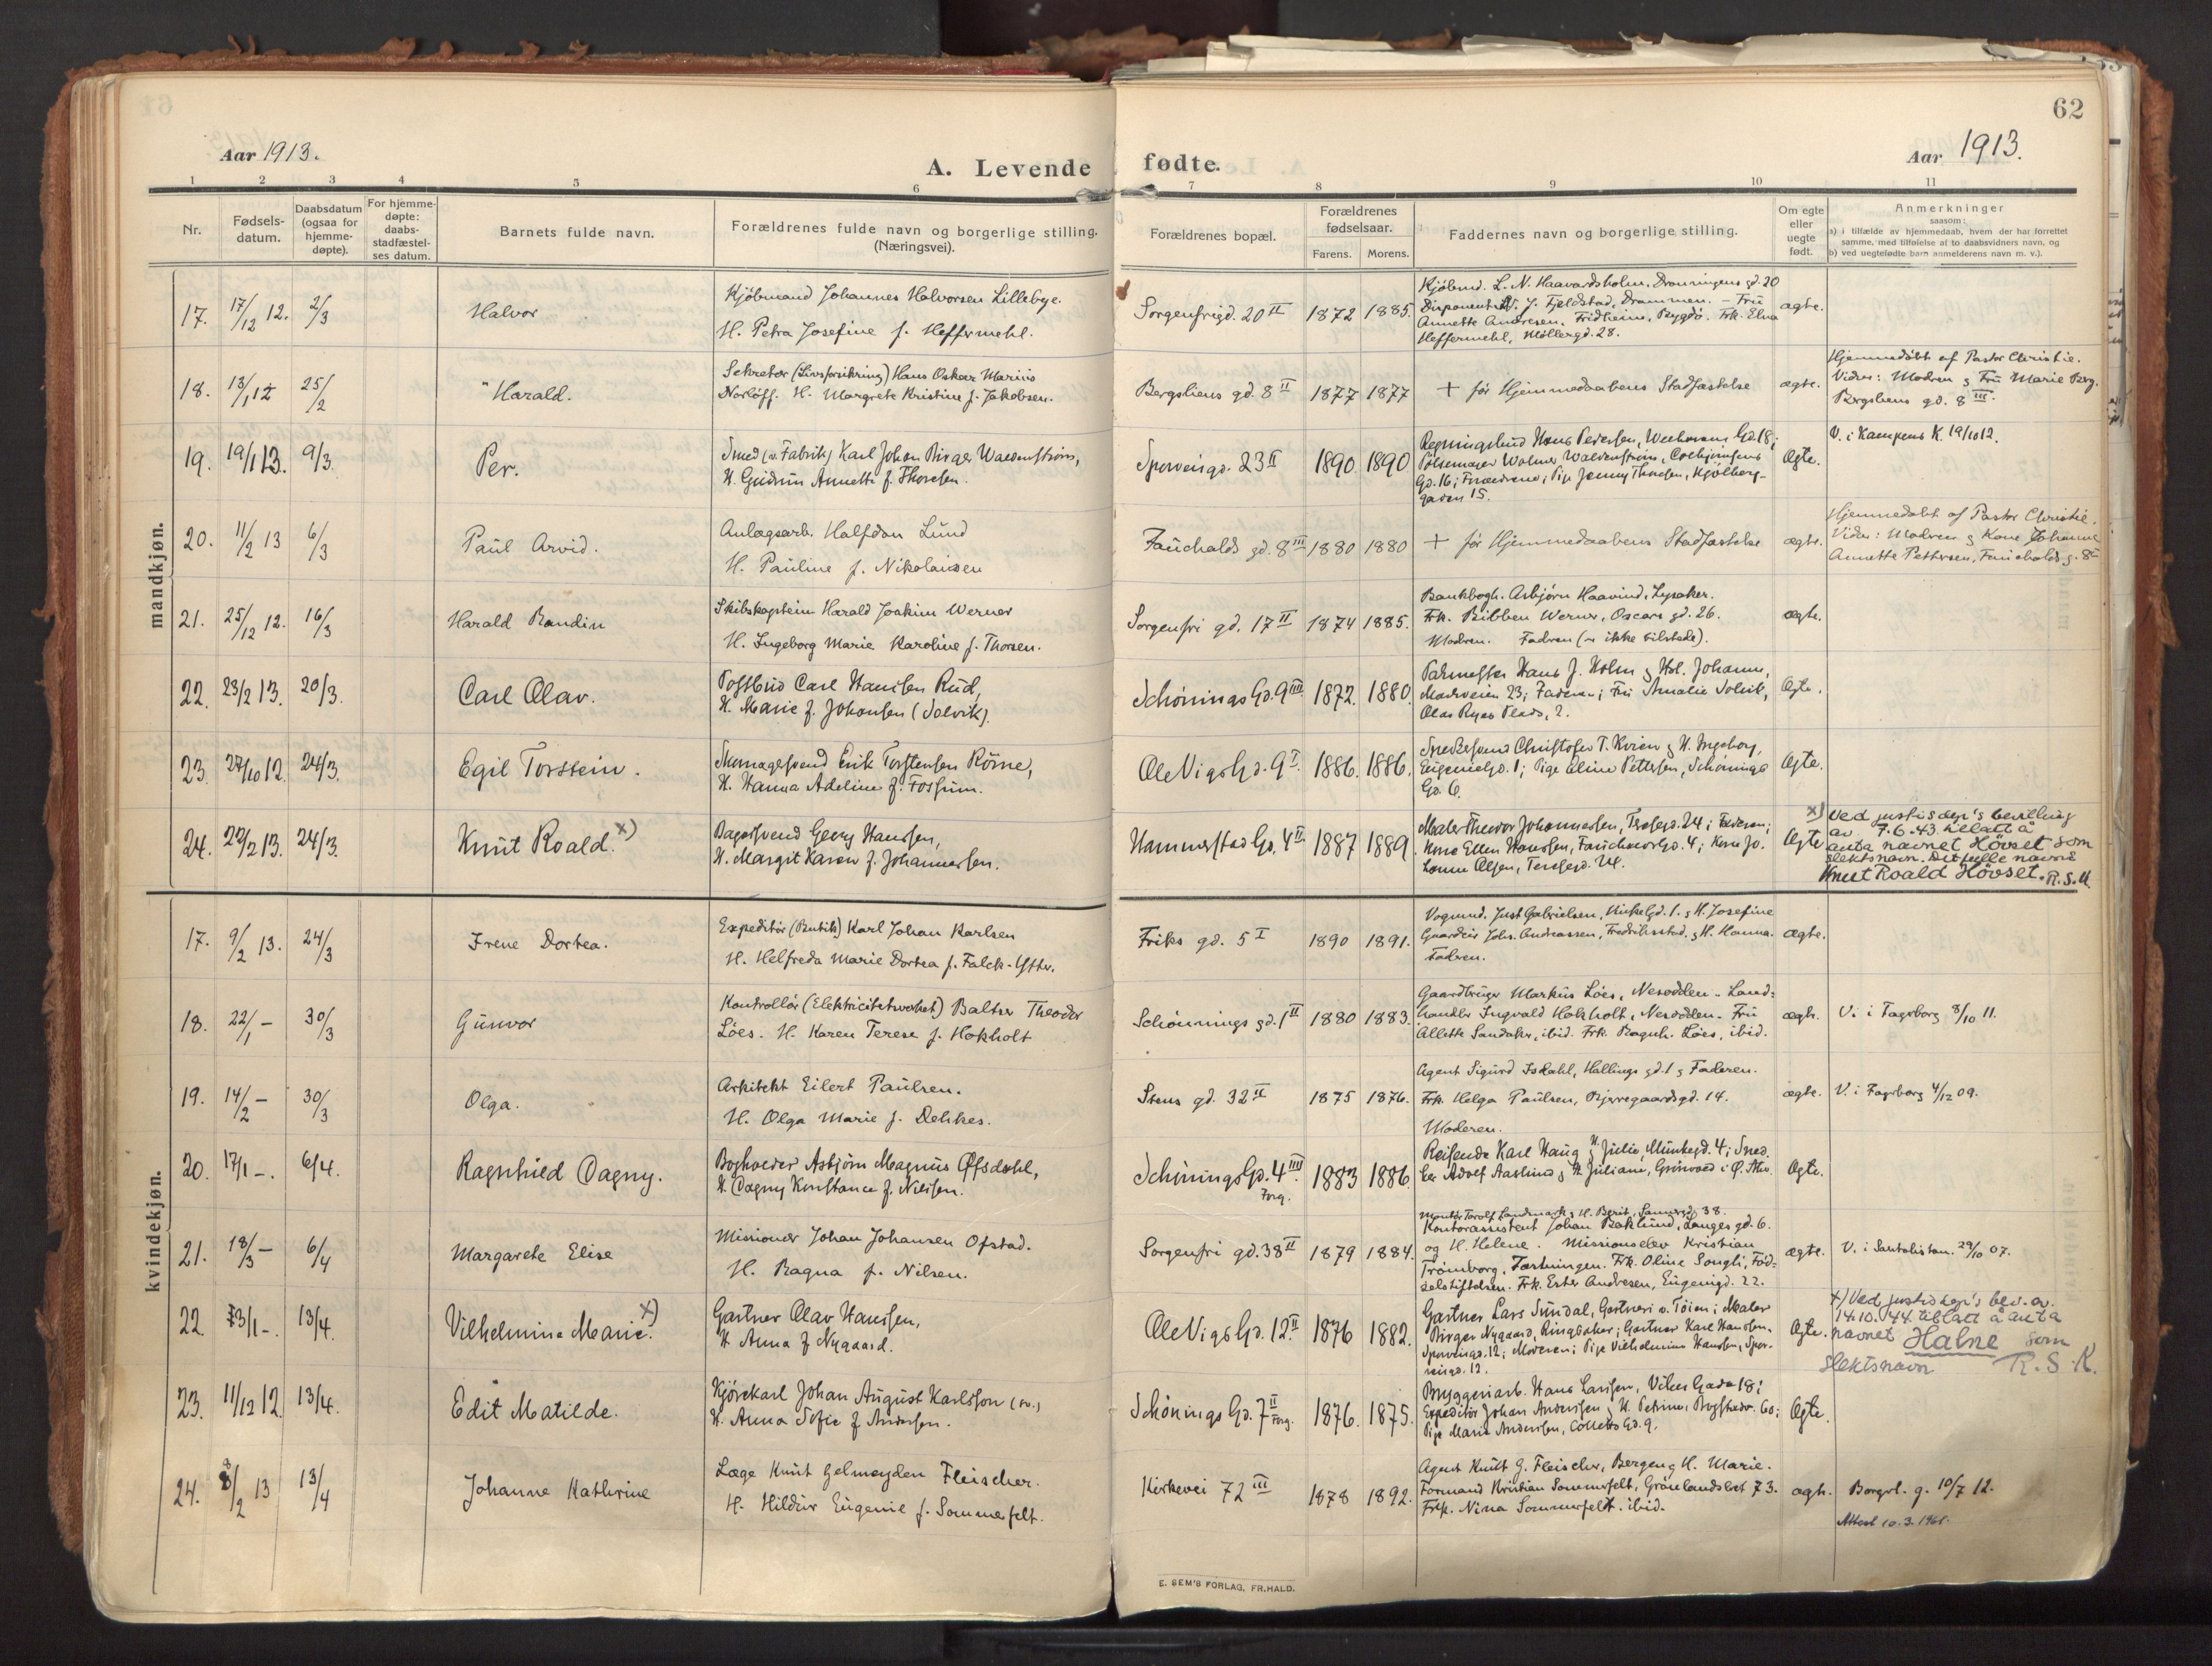 62
Aar 1913.
A. Levende fødte.
Aar 1913.
1 2 3 4 5 6 7 8 9 10 11
Nr.
Fødsels-
datum.
Daabsdatum
(ogsaa for
hjemme-
døpte).
For hjemme-
døpte:
daabs-
stadfæstel-
ses datum.
Barnets fulde navn.
Forældrenes fulde navn og borgerlige stilling.
(Næringsvei).
Forældrenes bopæl.
Forældrenes
fødselsaar.
Farens. Morens.
Faddernes navn og borgerlige stilling.
Om egte
eller
uegte
født.
Anmerkninger
saasom:
a) i tilfælde av hjemmedaab, hvem der har forrettet
samme, med tilføielse af to daabsvidners navn, og
b) ved uegtefødte barn anmelderens navn m. v.).
mandkjøn.
17. 17/12 12. 2/3
Halvor
Kjöbmand Johannes Halvorsen Lillebye.
H. Petra Josefine f. Heffermehl.
Sorgenfrigd. 20 II
1872 1885.
Kjöbmd. L. N. Haavardsholm, Dronningens gd. 20
J. Fjeldstad, Drammen. – Frü
Annette Andresen, Fridheim, Bygdö. Frk. Elna
Heffermehl, Möllergd. 28.
ægte.
18. 13/1 12 25/2
Harald.
Sekretær (Livsforsikring) Hans Oskar Marius
Norløff. H. Margrete Kristine f. Jakobsen.
Bergsliens gd. 8 II
1877 1877
+ før Hjemmedaabens Stadfæstelse
ægte.
Hjemmedöbt af Pastor Christie.
Vidner: Modren & Frü Marie Berg.
Bergsliens gd. 8 III.
19. 19/1 13. 9/3
Per.
Smed (v. Fabrik) Karl Johan Birger Waldenstrøm,
H. Gudrun Annette f. Thoresen.
Sporveisgd. 23 II
1890 1890
Hans Pedersen,
Pølsemager Wolmer Waldenstrøm,
Gd. 16; Forældrene; Pige Jenny Thoresen, Kjölberg-
gaden 15.
Ægte.
V. i Kampens K. 19/10 12.
20. 11/2 13 6/3
Paul Arvid.
Anlægsarb. Halfdan Lund
H. Pauline f. Nikolaisen
Fauchalds gd. 8 III
1880 1880
+ før Hjemmedaabens Stadfæstelse
ægte.
Hjemmedöbt af Pastor Christie.
Vidner: Modren & Kone Johanne
Annette Pettersen, Fauchalds g. 8
21. 25/12 12. 16/3
Harald Randin
Skibskaptein Harald Joakim Werner
H. Ingeborg Marie Karoline f. Thorsen.
Sorgenfri gd. 17 II
1874 1885.
Bankbogh. Asbjørn Haavind, Lysaker.
Frk. Bibben Werner, Oscars gd. 26.
Modren. Fadren (v. ikke tilstede).
ægte.
22. 23/2 13. 20/3.
Carl Olav.
Postbud Carl Hansen Rud,
H. Marie f. Johansen (Solvik).
Schønings Gd. 9 III
1872. 1880.
Hans J. Holm & H. Johanne,
Markveien 23; Faderen; Frü Amalie Solvik,
Olav Ryes Plads, 2.
Ægte.
23. 27/10 12. 24/3.
Egil Torstein.
Skomagersvend Erik Torstensen Röme,
H. Hanna Adeline f. Fossum.
Ole Vigs Gd. 9 I.
1886. 1886.
Snedkersvend Christofer T. Kvien & H. Ingeborg,
Eugenie Gd. 1; Pige Eline Pettersen, Schønings
Gd. 6.
Ægte.
24. 22/2 13. 24/3.
Knut Roald. x)
Bagersvend Georg Hanssen,
H. Margit Karen f. Johannessen.
Hammerstad Gd. 4 II
1887 1889.
Maler Theodor Johannessen, Teresegd. 24; Faderen;
Kone Ellen Hanssen, Fauchalds Gd. 4; Kone Jo-
hanne Olsen, Teresegd. 24.
Ægte
x) Ved justisdep's bevilling
av 7.6.43 tillatt å
anta navnet Hövset som
slektsnavn. Det fulle navn:
Knut Roald Hövset. R.S.K.
kvindekjøn.
17. 9/2 13. 24/3
Irene Dortea.
Expeditör (Butik) Karl Johan Karlsen
H. Helfreda Marie Dortea f. Falck-Ytter.
Friks gd. 5 I
1890 1891.
Vognmd. Just Gabrielsen, Gd. 1. & H. Josefine
Gaardeier Johs. Andreassen, Fredriksstad. & H. Hanna.
Fadren.
ægte.
18. 22/1 – 30/3
Gunvor
Kontrollör (Elektricitetsverket) Baltser Theodor
Löes. H. Karen Terese f. Hokholt
Schönnings gd. 1 II
1880 1883.
Gaardbruger Markus Löes, Nesodden – Land-
handler Ingvald Hokholt, Nesodden. Frü
Allette Sandaker, ibid. Frk. Ragnh. Löes, ibid.
ægte.
V. i Fagerborg 8/10 11.
19. 14/2 – 30/3
Olga.
Arkitekt Eilert Paulsen.
H. Olga Marie f. Dehkes.
Stens gd. 32 II
1875 1876.
Agent Sigurd Isdahl, Hallings gd. 1 & Faderen.
Frk. Helga Paulsen, Bjerregaardsgd. 14.
Moderen.
ægte.
V. i Fagerborg 4/12 09.
20. 17/1 –. 6/4.
Ragnhild Dagny.
Bogholder Asbjørn Magnus Øfsdahl,
H. Dagny Konstance f. Nilsen.
Schønings Gd. 4 III.
Forg.
1883 1886.
Reisende Karl Haug & H. Julie, Munkegd. 4; Sned-
ker Adolf Aaslund & H. Juliane,
Ægte.
21. 18/3 – 6/4
Margarete Elise
Missionær Johan Johansen Ofstad.
H. Ragna f. Nilsen.
Sorgenfri gd. 38 II
1879 1884.
Montör Torolf Landmark & H. Berit, 38.
Kontorassistent Johan Baklund, Langes gd. 6.
og H. Helene. Missionselev Kristian
Trömborg, Fæstningen. Frk. Oline Songli, Föd-
selsstiftelsen. Frk. Ester Andresen, Eugenigd. 22.
ægte.
V. i Santalistan. 29/10 07.
22. 13/1 –. 13/4.
Vilhelmine Marie. x)
Gartner Olav Hanssen,
H. Anna f. Nygaard.
Ole Vigs Gd. 12 II
1876 1882.
Gartner Lars Sundal, Gartneri v. Töien; Maler
Birger Nygaard, Ringsaker; Gartner Karl Hanssen,
Sporveisgd. 12; Moderen; Pige Vilhelmine Hanssen, Spor-
veisgd. 12.
Ægte.
x) Ved justisdep's bev. av
14.10.44 tillatt å anta
navnet Halne som
slektsnavn R.S.K.
23. 11/12 12. 13/4.
Edit Matilde.
Kjörekarl Johan August Karlsson (sv.)
H. Anna Sofie f. Andersen.
Schønings Gd. 7 II Forg.
1876. 1875.
Bryggeriarb. Hans Larssen, Vibes Gade 18;
Expeditör Johan Anderssen & H. Petrine, Bogstadv. 60;
Pige Marie Anderssen, Colletts Gd. 9.
Ægte.
24. 8/2 13 13/4
Johanne Kathrine
Læge Knut Gelmeyden Fleischer.
H. Hildur Eugenie f. Sommerfelt.
Kirkevei 72 III
1878 1892.
Agent Knut G. Fleischer, Bergen & H. Marie.
Formand Kristian Sommerfelt, Grönlandsleret 73.
Frk. Nina Sommerfelt. ibid.
ægte.
Borgerl. g. 10/7 12.
Attest 10.3.1961.
E. SEM'S FORLAG, FR.HALD.